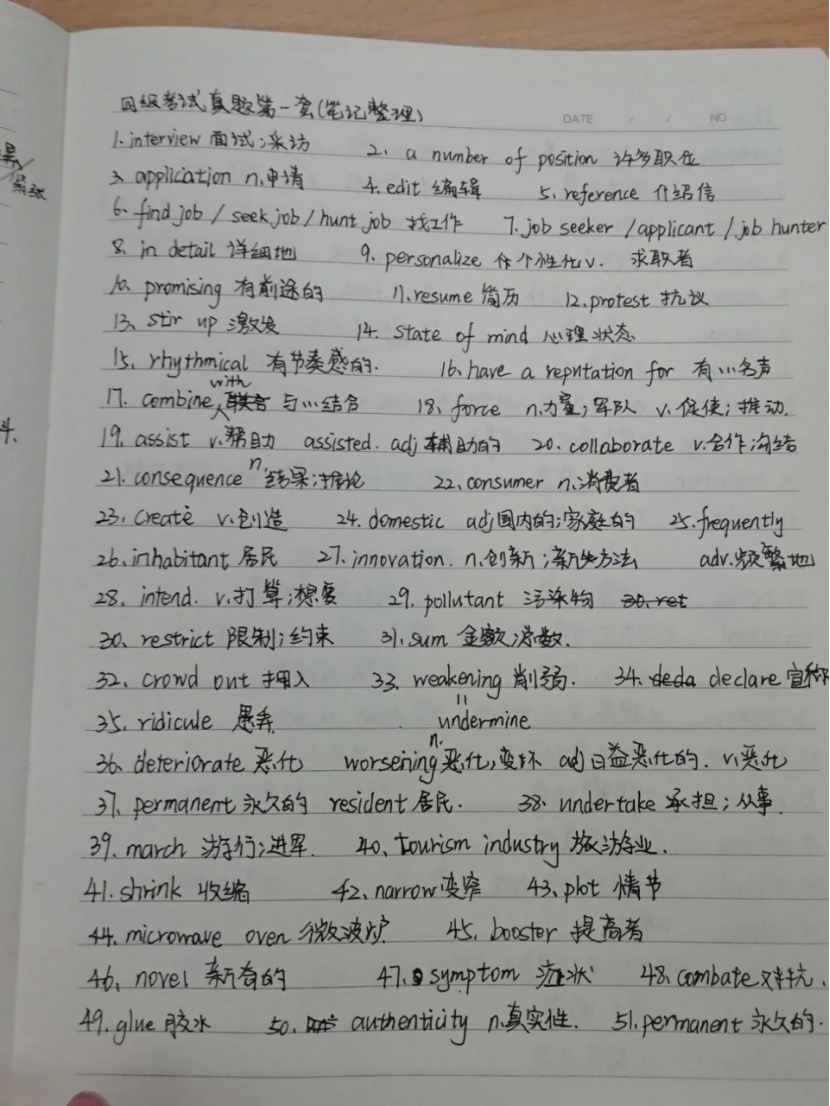 四级考试真题第一套(笔记整理)
DATE / / NO
1. interview 面试;采访 2. a number of position 许多职位
3. application n.申请 4. edit 编辑 5. reference 介绍信
6. find job / seek job / hunt job 找工作 7. job seeker / applicant / job hunter
8. in detail 详细地 9. personalize 使个性化v. 求职者
10. promising 有前途的 11. resume 简历 12. protest 抗议
13. stir up 激发 14. state of mind 心理状态
15. rhythmical 有节奏感的. 16. have a reputation for 有…名声
with
17. combine 联合 与…结合 18. force n.力量;军队 v.促使;推动.
19. assist v.帮助 assisted. adj 辅助的 20. collaborate v.合作;沟结
21. consequence n.结果;推论 22. consumer n.消费者
23. create v.创造 24. domestic adj国内的;家庭的 25. frequently
26. inhabitant 居民 27. innovation. n.创新;新方法 adv.频繁地
28. intend. v.打算;想要 29. pollutant 污染物 30. ret
30. restrict 限制;约束 31. sum 金额;总数.
32. crowd out 挤入 33. weakening 削弱. 34. deda declare 宣称
35. ridicule 愚弄 undermine
36. deteriorate 恶化 worsening n.恶化,变坏 adj日益恶化的. v.恶化
37. permanent 永久的 resident 居民. 38. undertake 承担;从事.
39. march 游行;进军. 40. tourism industry 旅游业.
41. shrink 收缩 42. narrow 变窄 43. plot 情节
44. microwave oven 微波炉 45. booster 提高者
46. novel 新奇的 47. symptom 症状 48. combate 对抗.
49. glue 胶水 50. authenticity n.真实性. 51. permanent 永久的.